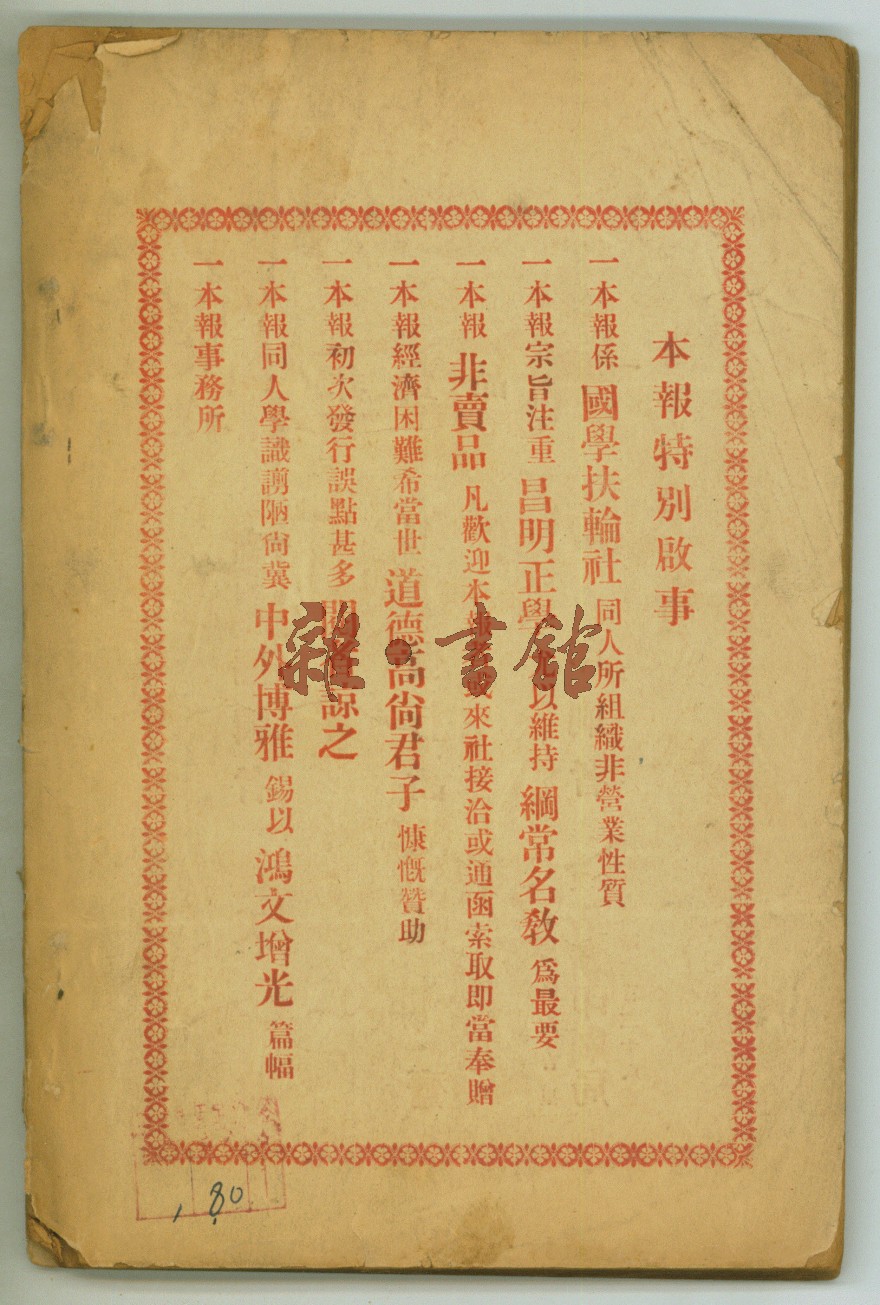 本報特別啟事
一本報係國學扶輪社同人所組織非營業性質
一本報宗旨注重昌明正學尤以維持綱常名教為最要
一本報非賣品凡歡迎本報者或來社接洽或通函索取即當奉贈
一本報經濟困難希當世道德高尚君子慷慨贊助
一本報初次發行誤點甚多閱者諒之
一本報同人學識謭陋尙冀中外博雅錫以鴻文增光篇幅
一本報事務所
雜·書館
1.80